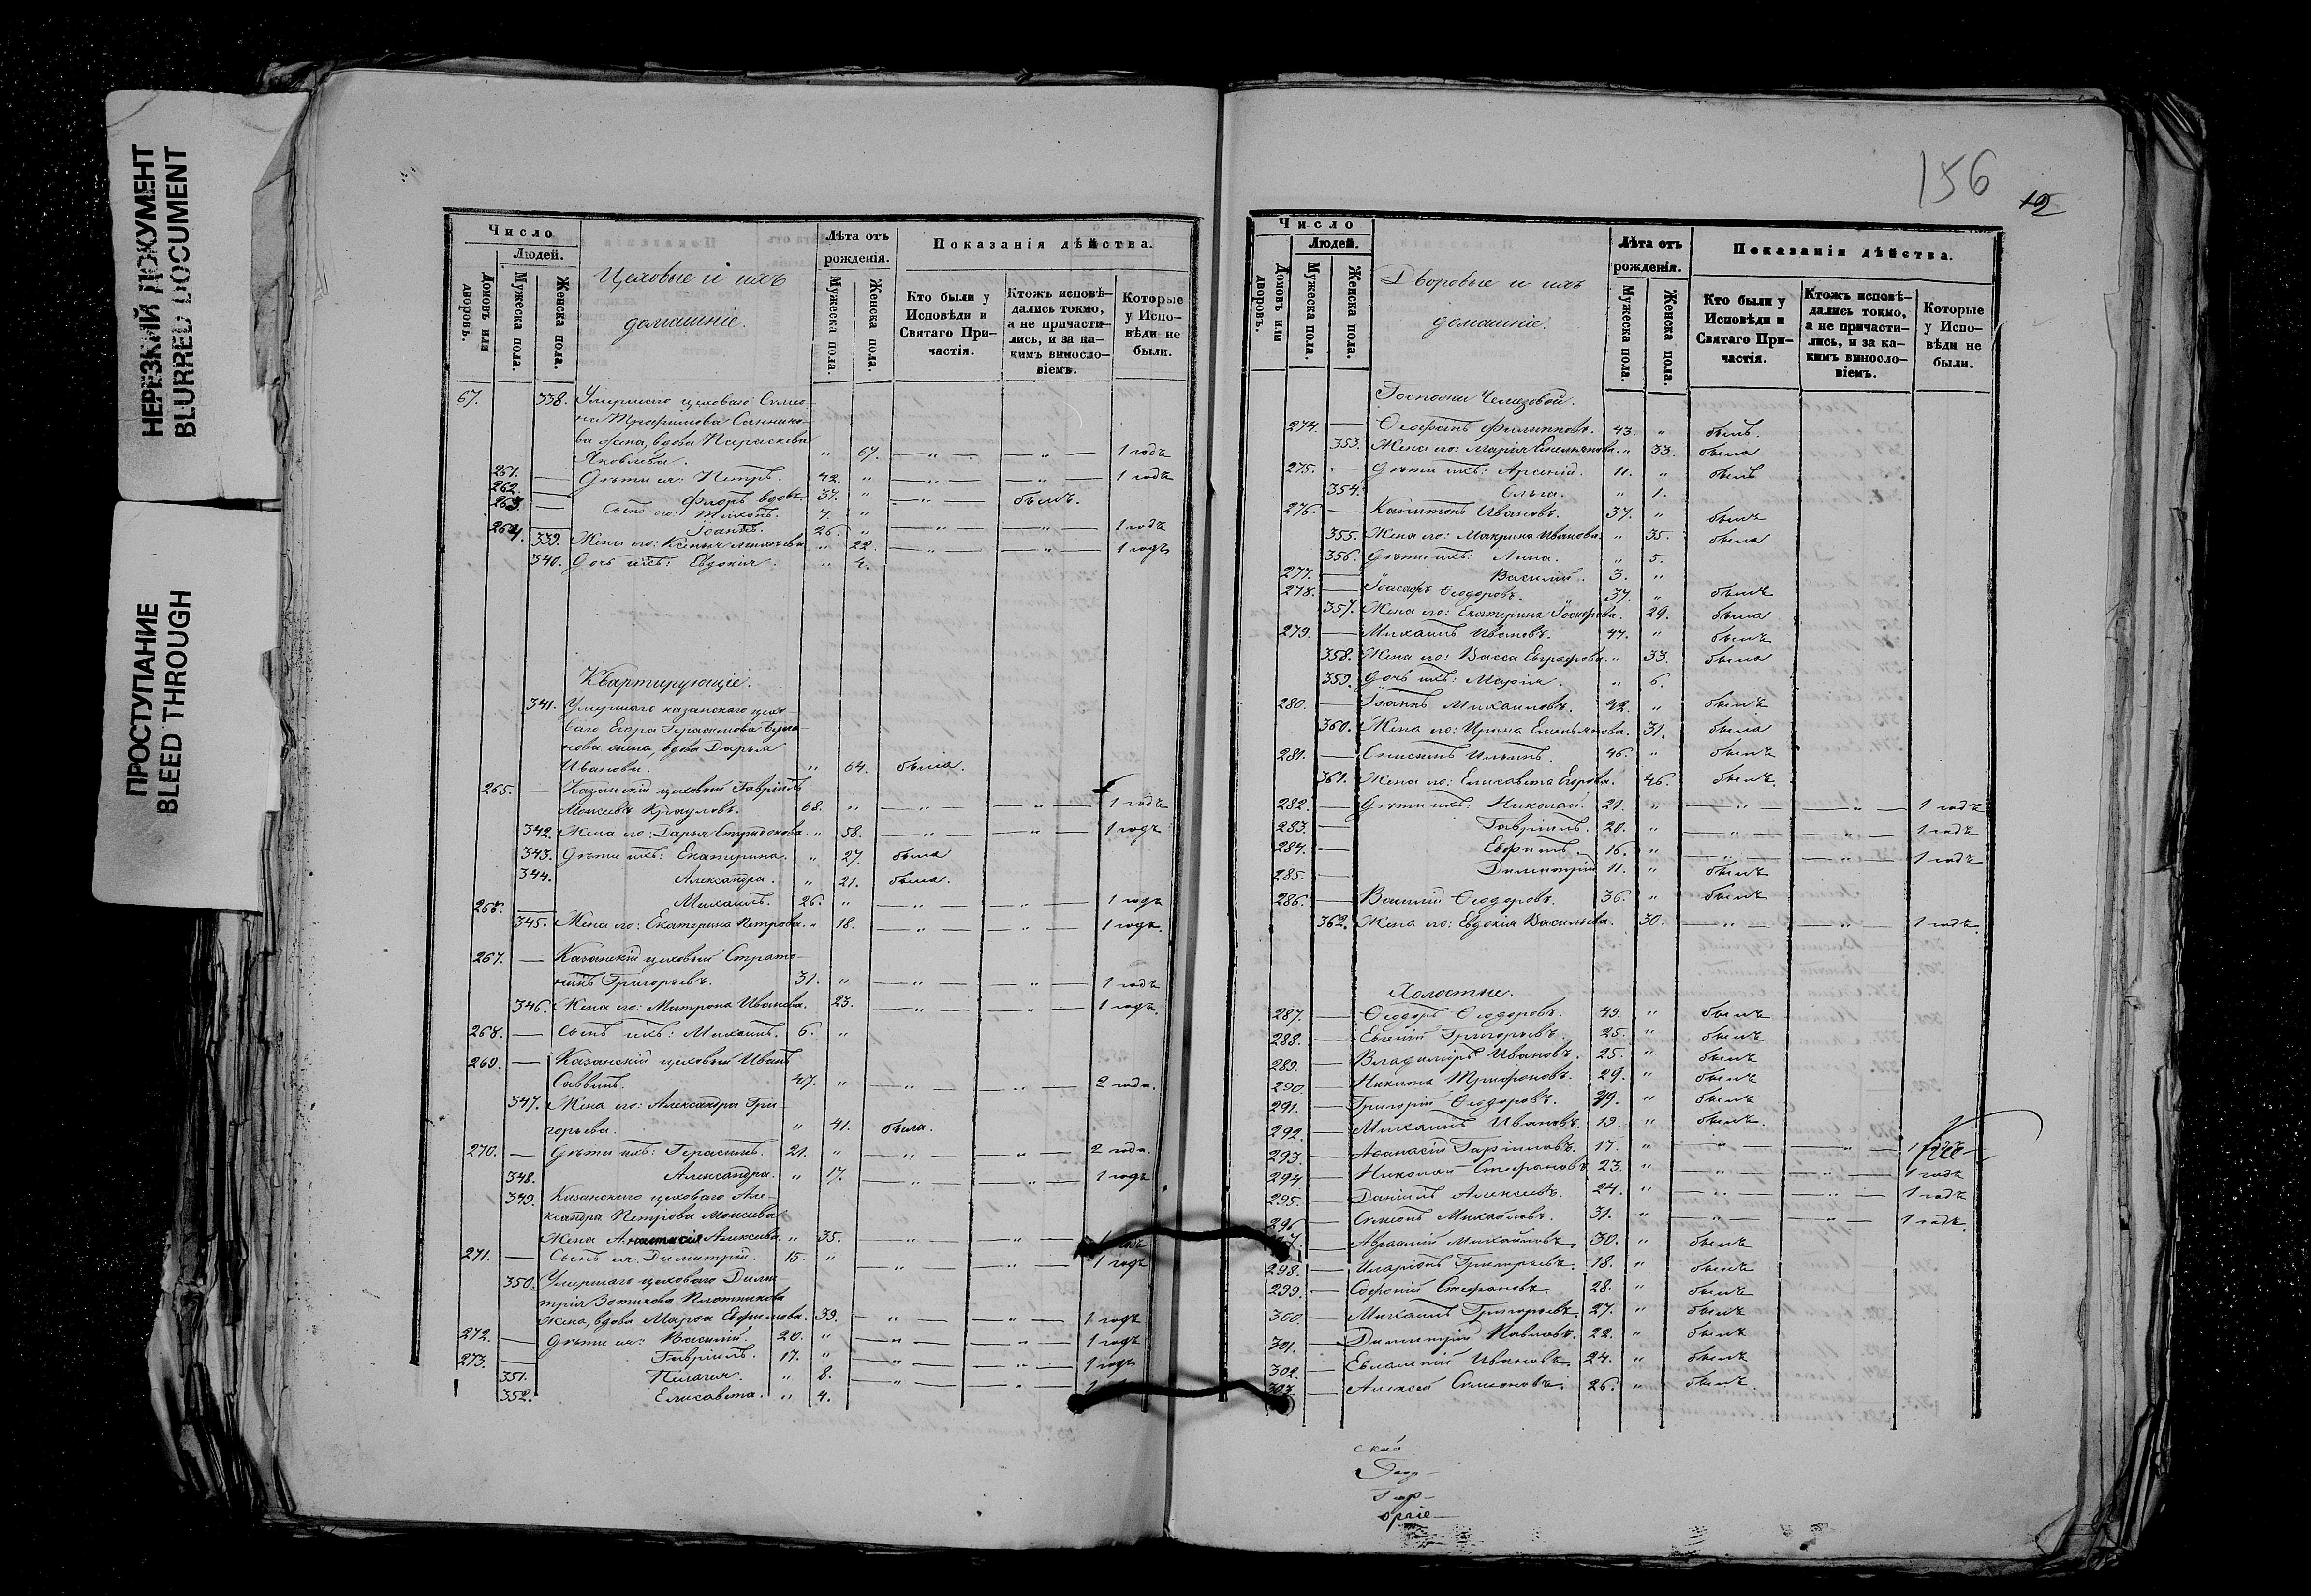 НЕРЕЗКИЙ ДОКУМЕНТ
BLURRED DOCUMENT
ПРОСТУПАНИЕ
BLEED THROUGH
Число
Людей.
Домовъ или дворовъ.
Мужеска пола.
Женска пола.
Цеховые и ихъ
домашніе.
Лѣта отъ рожденія.
Мужеска пола.
Женска пола.
Показанія дѣйства.
Кто были у Исповѣди и Святаго Причастія.
Ктожъ исповѣдались токмо, а не причастились, и за какимъ винословіемъ.
Которые у Исповѣди не были.
67. 338. Умершаго цеховаго Симео-
на Трофимова Санник-
ва жена, вдова Параскева
Яковлева. " 67. — " — — " — 1 годъ
261. — Дѣти ея: Петръ. 42. " — " — — " — 1 годъ
262. — Флоръ вдовъ. 37. " — " — былъ.
263. — Сынъ его: Тихонъ. 7. "
264. — Іоаннъ. 26. " — " — — " — 1 годъ
339. Жена его: Ксенія " 22. — " — — " — 1 годъ
340. Дочь ихъ: Евдокія. " 4.
Квартирующіе.
341. Умершаго казанскаго цехо-
ваго Егора Герасимова
жена, вдова Дарья
Иванова. " 64. была.
265. — Казанскій цеховый Гавріилъ
Моисеевъ Крауловъ. 68. " — " — — " — 1 годъ
342. Жена его: Дарья Спиридонова. " 58. — " — — " — 1 годъ
343. Дѣти ихъ: Екатерина. " 27. была
344. Александра. " 21. была.
266. — Михаилъ. 26. " — " — — " — 1 годъ
345. Жена его: Екатерина Петрова. " 18. — " — — " — 1 годъ.
267. — Казанскій цеховый Страто-
никъ Григорьевъ. 31. " — " — — " — 1 годъ
346. Жена его: Матрона Иванова. 23. — " — — " — 1 годъ.
268. — Сынъ ихъ: Михаилъ. 6. "
269. — Казанскій цеховый Иванъ
Саввинъ. 47. " — " — — " — 2 года.
347. Жена его: Александра Гри-
горьева. " 41. была.
270. — Дѣти ихъ: Герасимъ. 21. " — " — — " — 2 года.
348. Александра. " 17. — " — — " — 1 годъ
349. Казанскаго цеховаго Але-
ксандра Петрова Моисеева
жена Анастасія Алексеева. " 35. — " — — " — 1 годъ
271. — Сынъ ея. Димитрій. 15. " — " — — " — 1 годъ
350. Умершаго цеховаго Дими-
трія Зотикова Плотникова
жена, вдова Марѳа Ефимова. 39. — " — — " — 1 годъ
272. — Дѣти ея: Василій. 20. " — " — — " — 1 годъ
273. — Гавріилъ. 17. " — " — — " — 1 годъ
351. Пелагія. " 8. — " — — " —
352. Елисавета. " 4.
156
12
Число
Людей.
Домовъ или дворовъ.
Мужеска пола.
Женска пола.
Дворовые и ихъ
домашніе.
Лѣта отъ рожденія.
Мужеска пола.
Женска пола.
Показанія дѣйства.
Кто были у Исповѣди и Святаго Причастія.
Ктожъ исповѣдались токмо, а не причастились, и за какимъ винословіемъ.
Которые у Исповѣди не были.
Госпожи Челизовой.
274. — Ѳеофанъ Филипповъ. 43. " былъ.
353. Жена его: Марія Емельянова. " 33. была
275. — Дѣти ихъ: Арсеній. 11. " былъ
354. Ольга. " 1.
276. — Капитонъ Ивановъ. 37. " былъ
355. Жена его: Макрина Иванова. " 35. была
356. Дѣти ихъ: Анна. " 5.
277. — Василій. 3. "
278. — Іоасафъ Ѳеодоровъ. 37. " былъ
357. Жена его: Екатерина Іосифова. 29. была
279. — Михаилъ Ивановъ. 44. " былъ
358. Жена его: Васса Евграфова. " 33. была
359. Дочь ихъ: Марія. " 6.
280. — Іоаннъ Михаиловъ. 42. " былъ
360. Жена его: Ирина Емельянова. 31. была
281. — Онисимъ Ильинъ. 46. " былъ
361. Жена его: Елисавета Егорова. 46. былъ.
282. — Дѣти ихъ Николай. 21. " — " — — " — 1 годъ
283. — Гавріилъ. 20. " — " — — " — 1 годъ
284. — Евфимъ. 16. " — " — — " — 1 годъ
285. — Димитрій 11. " былъ
286. — Василій Ѳеодоровъ. 36. " былъ
362. Жена его: Евдокія Васильева. 30. — " — — " — 1 годъ.
Холостые.
287. — Ѳеодоръ Ѳеодоровъ. 49. " былъ
288. — Евгеній Григорьевъ. 25. " былъ
289. — Владиміръ Ивановъ. 25. " былъ
290. — Никита Трифоновъ. 29. " былъ
291. — Григорій Ѳеодоровъ. 29. " былъ
292. — Михаилъ Ивановъ. 19. " былъ.
293. — Аѳанасій Гавріиловъ. 17. " — " — — " — 1 годъ
294. — Николай Стефановъ. 23. " — " — — " — 1 годъ
295. — Даніилъ Алексеевъ. 24. " — " — — " — 1 годъ
296. — Симеонъ Михайловъ. 31. " — " — — " — 1 годъ.
297. — Авраамій Михайловъ. 30. " былъ
298. — Иларіонъ Григорьевъ. 18. " былъ
299. — Софроній Стефановъ. 28. " былъ
300. — Михаилъ Григорьевъ. 27. " былъ
301. — Димитрій Павловъ. 22. " былъ
302. — Евлампій Ивановъ. 24. " былъ
303. — Алексей Симеоновъ. 26. " былъ.
ской